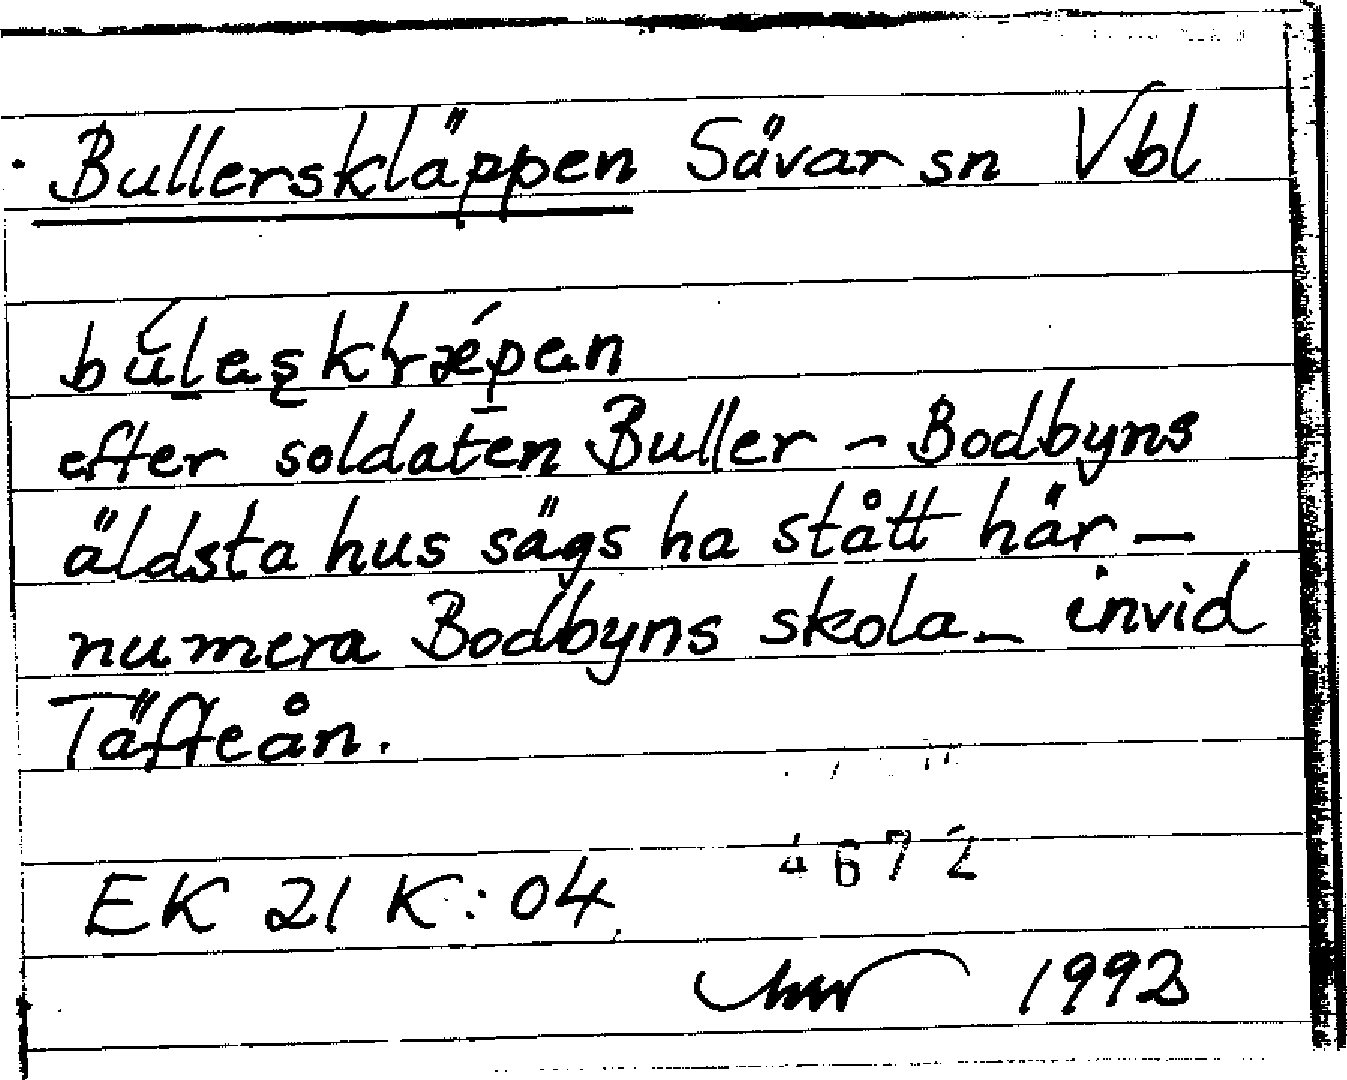 Bullerskläppen Sävar sn Vbl
efter soldaten Buller – Bodbyns
äldsta hus sägs ha stått här –
numera Bodbyns skola – invid
Täfteån.
4672
EK 21 K:04
1992